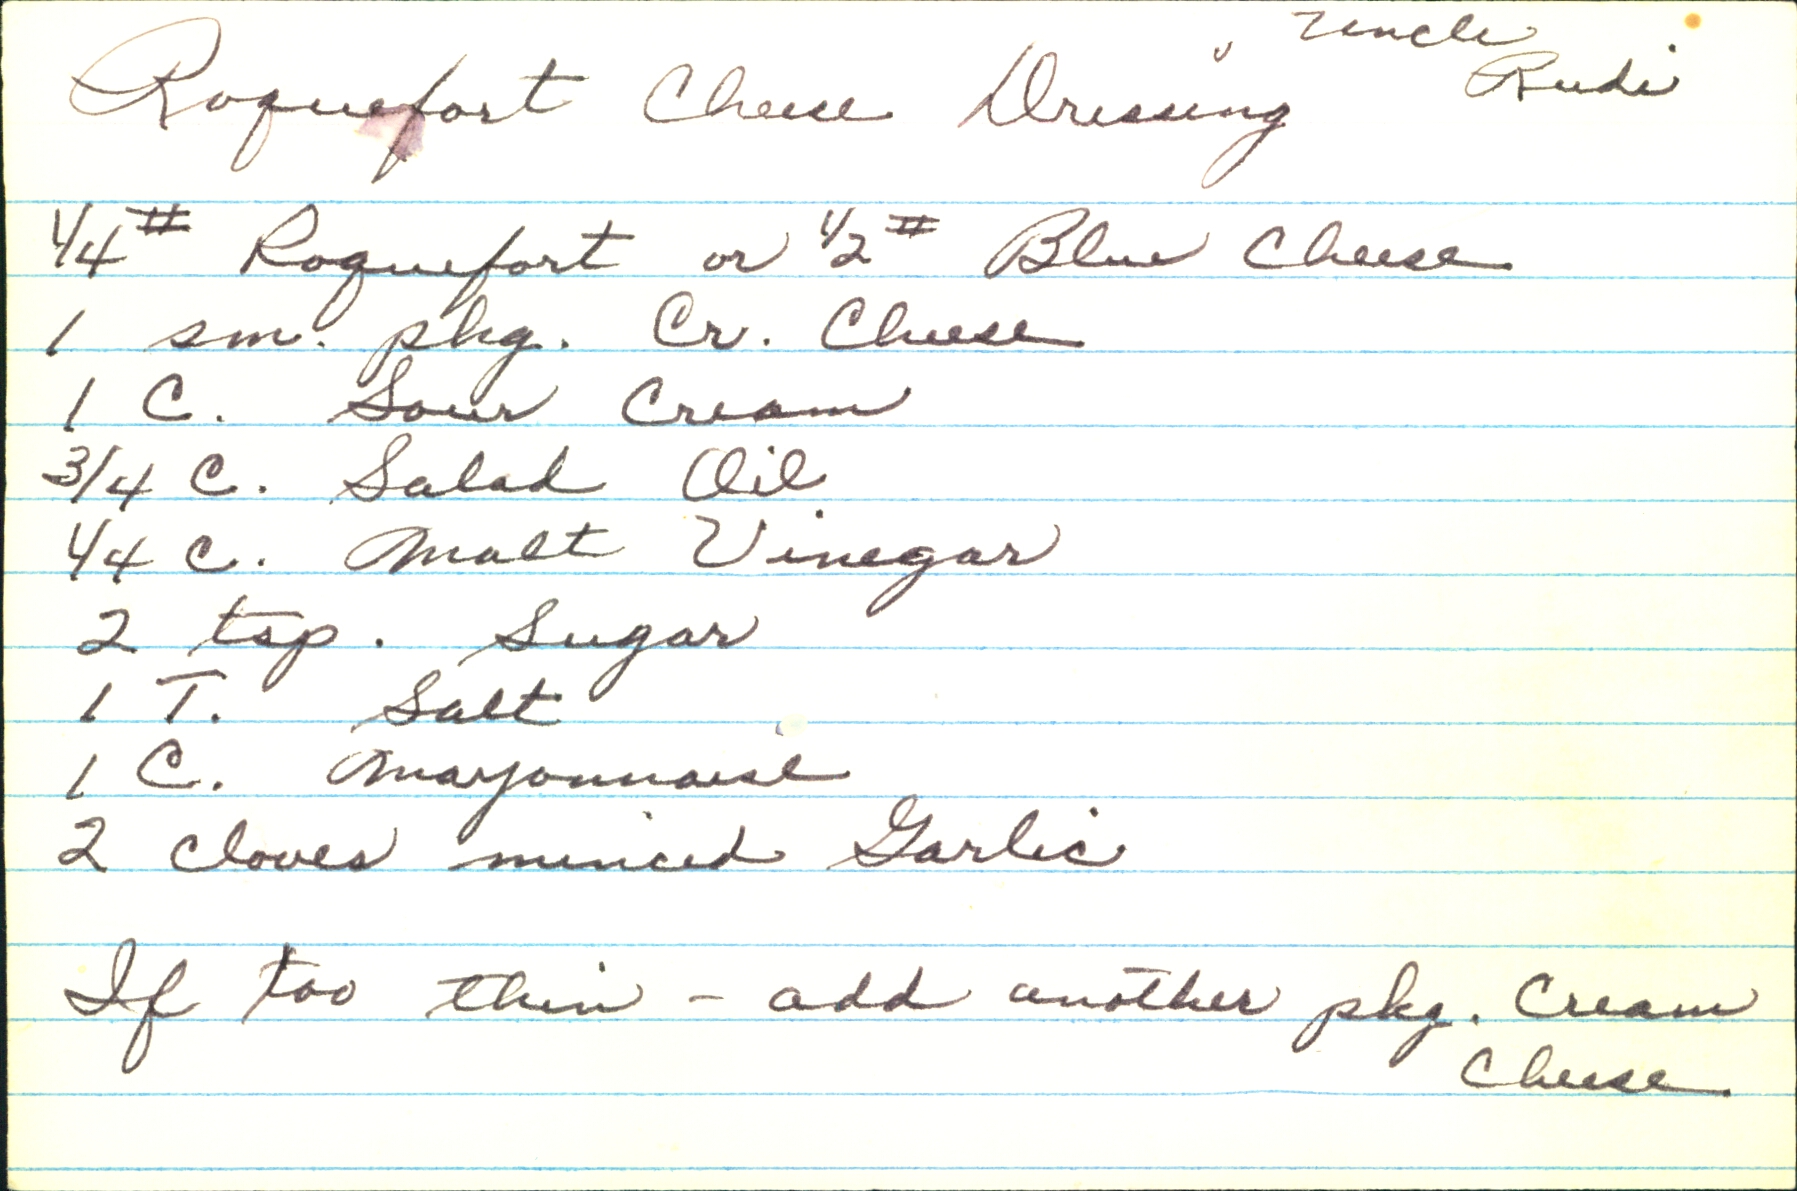 Uncle
Rudi
Roquefort Cheese Dressing
1/4# Roquefort or 1/2# Blue Cheese
1 sm. pkg. Cr. Cheese
1 C. Sour Cream
3/4 C. Salad Oil
1/4 C. Malt Vinegar
2 tsp. Sugar
1 T. Salt
1 C. Mayonnaise
2 cloves minced Garlic
If too thin - add another pkg. Cream
Cheese